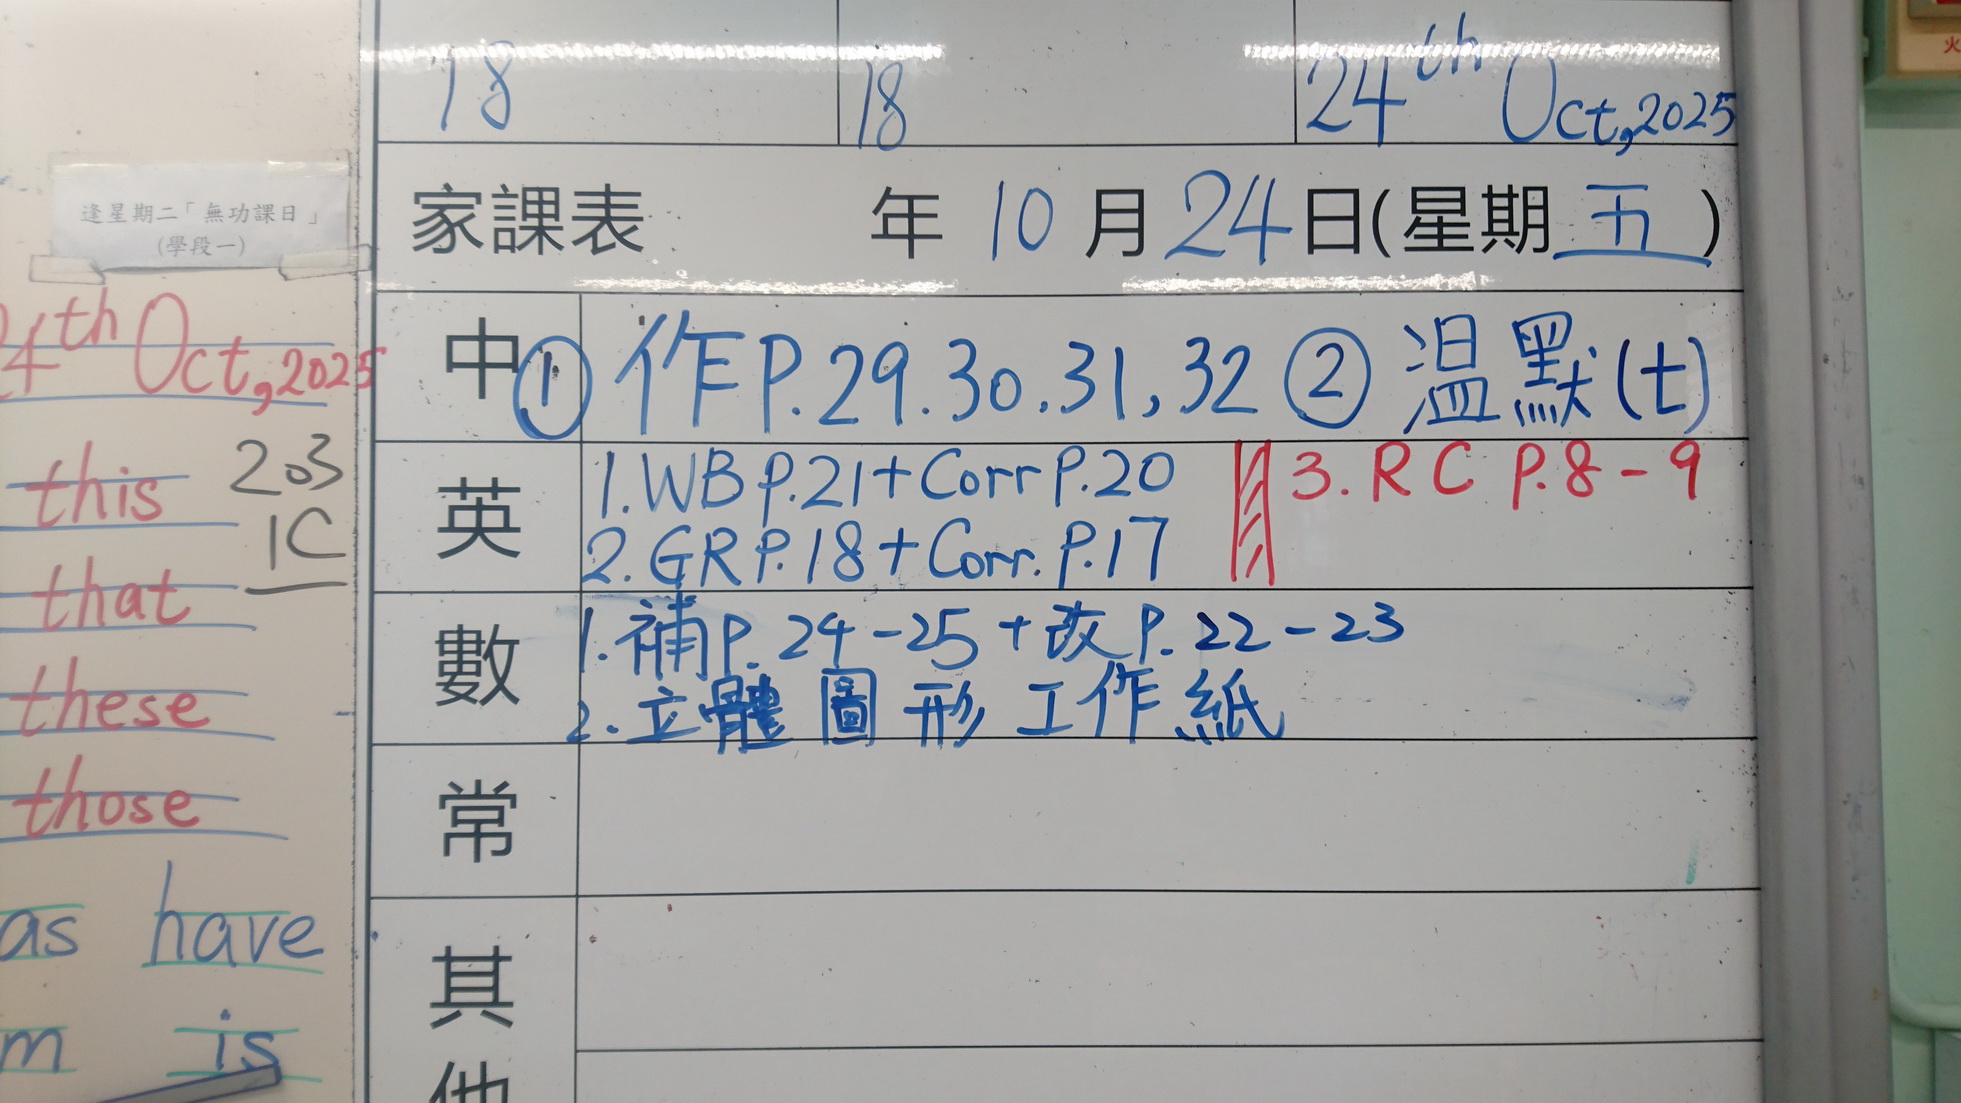 18 18 24th Oct, 2025
家課表 年 10 月 24 日(星期 五 )
中 ① 作P.29.30.31,32 ② 溫默(七)
英 1.WB P.21+Corr P.20 3. RC P.8-9
2. GR P.18+Corr. P.17
數 1.補P. 24-25 + 改P. 22-23
2.立體圖形工作紙
常
其
他
逢星期二「無功課日」
(學段一)
24th Oct, 2025
this 203
1C
that
these
those
as have
m is